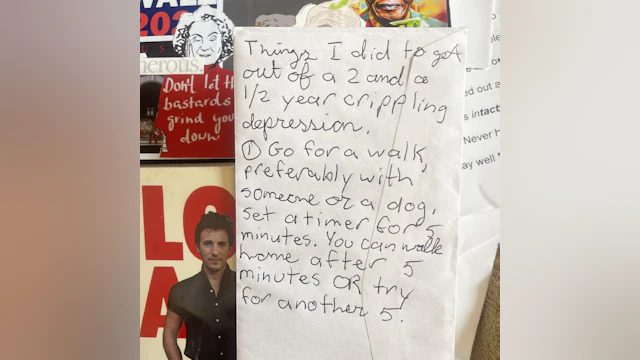 WAL
202
US
nerous.
Don't let the
bastards
grind you
down
LO
A
Things I did to get
out of a 2 and a
1/2 year crippling
depression.
① Go for a walk,
preferably with
someone or a dog,
set a timer for 5
minutes. You can walk
home after 5
minutes OR try
for another 5.
ed out a
s intact
Never h
ay well